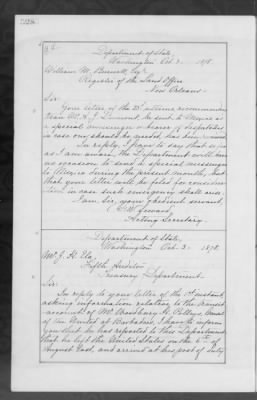 Department of State,
Washington Oct. 3. 1878.
William M. Burwell, Esq.
Register of the Land Office
New Orleans.
Sir:
Your letter of the ultimo recommending
that Mr. A. J. Dumont, be sent to Mexico as
a special messenger bearer of despatches
in case one should be needed, has been received.
In reply, I have to say that so far
as I am aware, the Department will have
no occasion to send a special messenger
to Mexico during the present month, but
that your letter will be filed for consideration
in case such emergency shall arise.
I am, Sir, your obedient servant,
F. W. Seward
Acting Secretary.
Department of State,
Washington Oct. 3. 1878.
Mr. J. H. Ela,
Fifth Auditor
Treasury Department.
Sir:
In reply to your letter of the 1st instant,
asking information relating to the
account of Mr. Woodbury H. Polleys, Consul
of the United at Barbados, I have to inform
you that he has reported to this Department
that he left the United States on the of
August last, and arrived at his post of duty